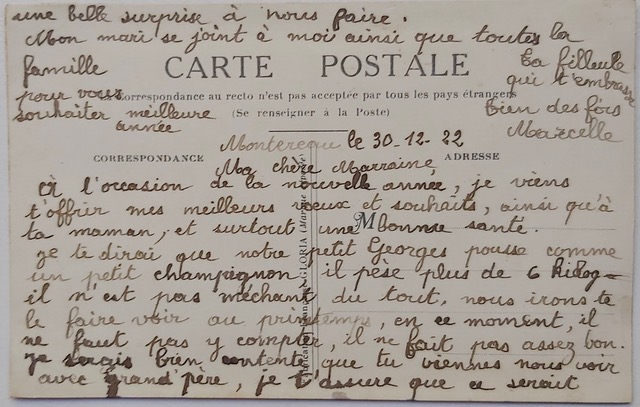 une belle surprise à nous faire.
Mon mari se joint à moi ainsi que toutes la
famille
pour vous
souhaiter meilleure
année
Ta filleule
qui t'embrasse
bien des fois
Marcelle
CARTE POSTALE
Correspondance au recto n'est pas acceptée par tous les pays étrangers
(Se renseigner à la Poste)
CORRESPONDANCE
ADRESSE
le 30-12-22
Ma chère Marraine
A l'occasion de la nouvelle année, je viens
t'offrir mes meilleurs vœux et souhaits, ainsi qu'à
ta maman, et surtout une bonne santé.
M
je te dirai que notre petit Georges pousse comme
un petit champignon, il pèse plus de 6 kilog
il n'est pas méchant du tout, nous irons te
le faire voir au printemps, en ce moment, il
ne faut pas y compter, il ne fait pas assez bon.
je serais bien contente que tu viennes nous voir
avec grand'père, je t'assure que ce serait
GLORIA